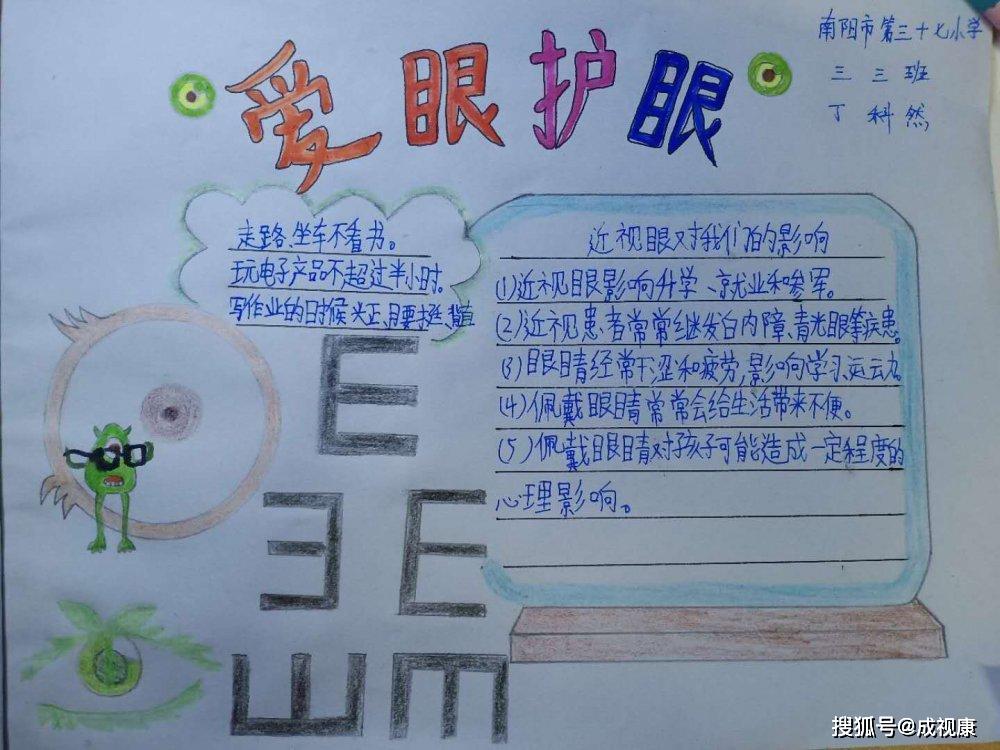 爱眼护眼
南阳市第三十七小学
三三班
丁科然
走路、坐车不看书。
玩电子产品不超过半小时。
写作业的时候头正、要挺、背直
近视眼对我们的影响
(1)近视眼影响升学、就业和参军。
(2)近视患者常常继发白内障、青光眼等疾患。
(3)眼睛经常干涩和疲劳,影响学习、运动
(4)佩戴眼睛常常会给生活带来不便。
(5)佩戴眼睛对孩子可能造成一定程度的
心理影响。
E
E
搜狐号@成视康